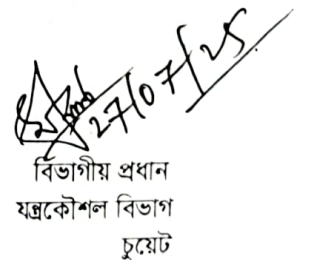 27/07/25
বিভাগীয় প্রধান
যন্ত্রকৌশল বিভাগ
চুয়েট